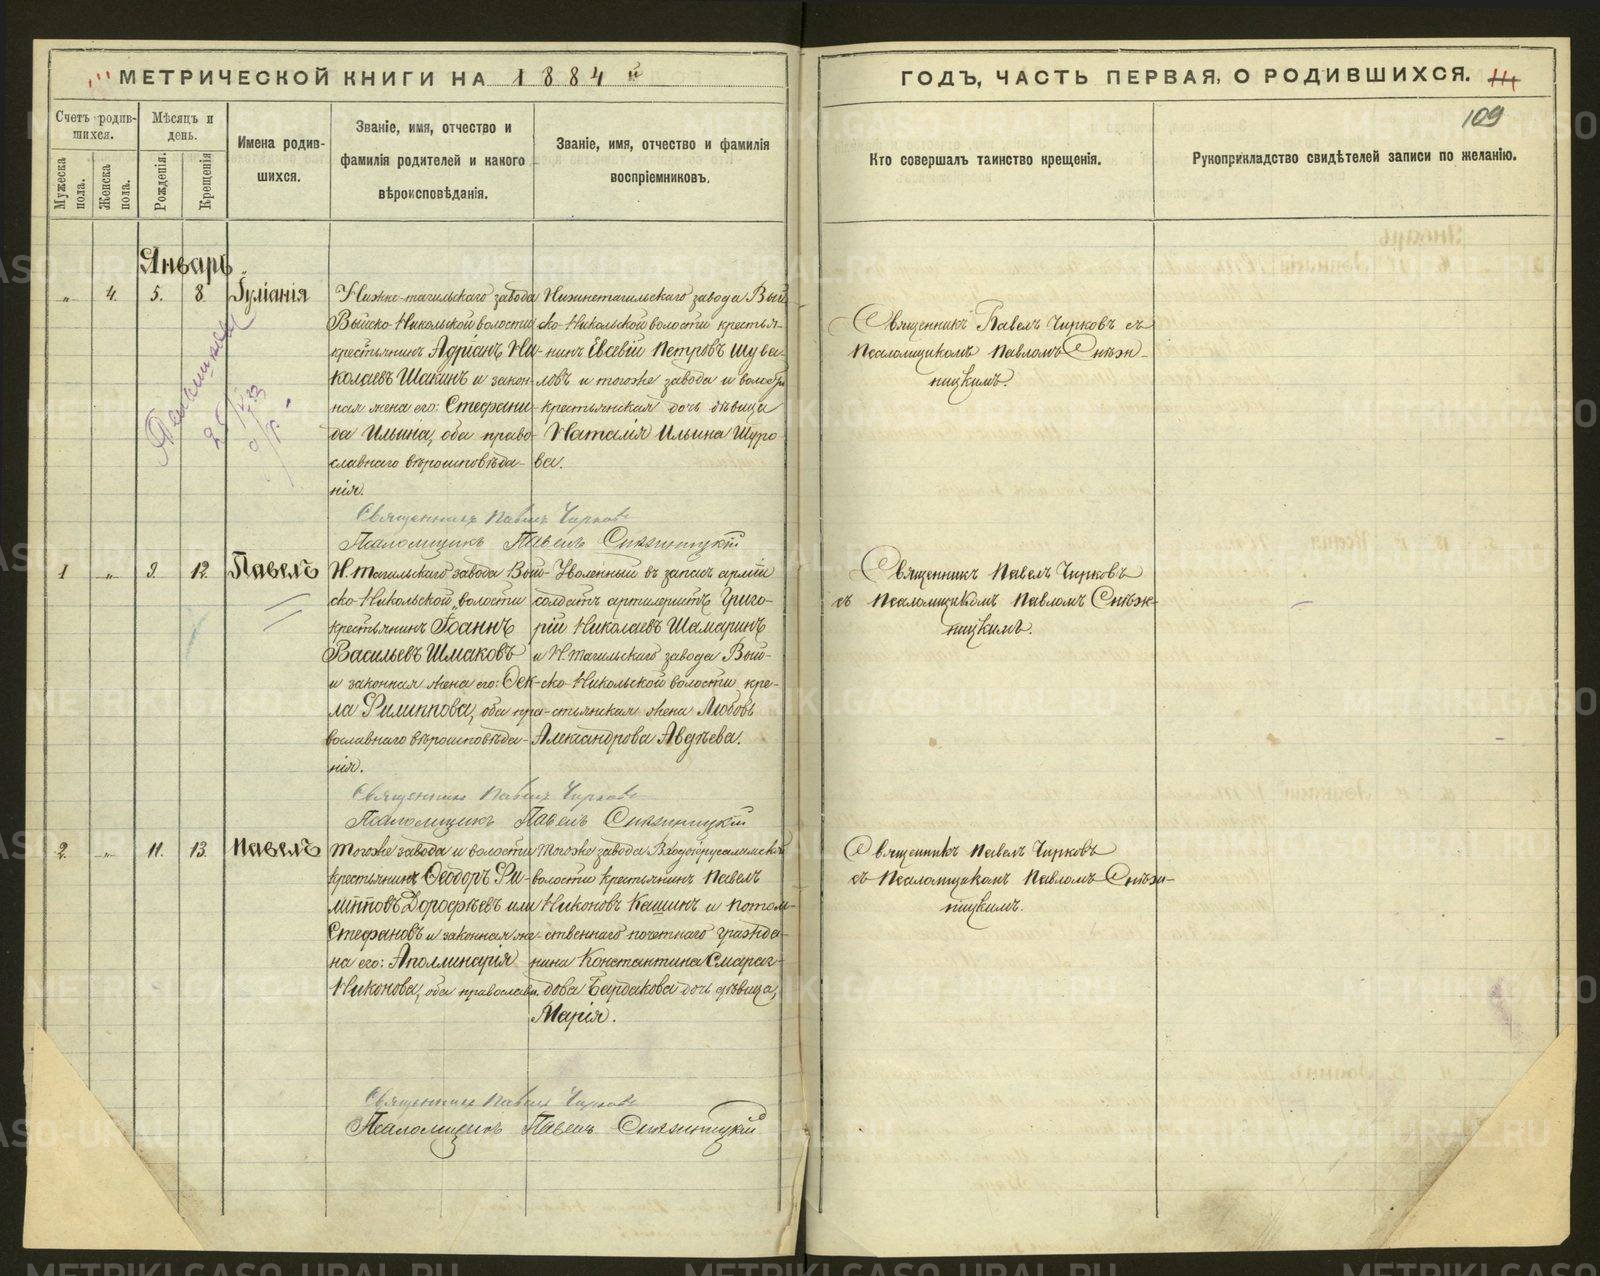 МЕТРИЧЕСКОЙ КНИГИ НА 1884 й
ГОДЪ, ЧАСТЬ ПЕРВАЯ, О РОДИВШИХСЯ.
109
Счетъ родив-
шихся.
Мужеска
пола.
Женска
пола.
Мѣсяцъ и
день.
Рожденія.
Крещенія
Имена родив-
шихся.
Званіе, имя, отчество и
фамилія родителей и какого
вѣроисповѣданія.
Званіе, имя, отчество и фамилія
воспріемниковъ.
Кто совершалъ таинство крещенія.
Рукоприкладство свидѣтелей записи по желанію.
Январь
„ 4. 5. 8 Іуліанія
Нижне-тагильскаго завода
Выйско-Никольской волости
крестьянинъ Адріанъ Ни-
колаевъ Шакинъ и закон-
ная жена его: Стефани-
да Ильина, оба право-
славнаго вѣроисповѣда-
нія.
Нижнетагильскаго завода Вый-
ско-Никольской волости крестья-
нинъ Евсевій Петровъ Шува-
ловъ и тогоже завода и волости
крестьянская дочь дѣвица
Наталія Ильина Щуро-
ва.
Священникъ Павелъ Чирковъ съ
Псаломщикомъ Павломъ Снѣж-
ницкимъ.
Священникъ Павелъ Чирковъ
Псаломщикъ Павелъ Снѣжницкій
1 „ 9. 12. Павелъ
Н. тагильскаго завода Вый-
ско-Никольской волости
крестьянинъ Іоаннъ
Васильевъ Шмаковъ
и законная жена его: Фек-
ла Филиппова, оба пра-
вославнаго вѣроисповѣда-
нія.
Уволенный въ запасъ арміи
солдатъ артилеристъ Григо-
рій Николаевъ Шамаринъ
и Н. тагильскаго завода Вый-
ско-Никольской волости кре-
стьянская жена Любовь
Александрова Авдѣева.
Священникъ Павелъ Чирковъ
съ Псаломщикомъ Павломъ Снѣж-
ницкимъ.
Священникъ Павелъ Чирковъ
Псаломщикъ Павелъ Снѣжницкій
2. „ 11. 13. Павелъ
Тогоже завода и волости
крестьянинъ Ѳеодоръ Фи-
липповъ Дорофѣевъ или
Стефановъ и законная же-
на его: Аполлинарія
Никонова, оба православн.
Тогоже завода Входоіерусалимской
волости крестьянинъ Павелъ
Никоновъ Кашинъ и потом-
ственнаго почетнаго гражда-
нина Константина Смараг-
дова Бардакова дочь дѣвица,
Марія.
Священникъ Павелъ Чирковъ
съ Псаломщикомъ Павломъ Снѣж-
ницкимъ.
Священникъ Павелъ Чирковъ
Псаломщикъ Павелъ Снѣжницкій
METRIKI.GASO-URAL.RU